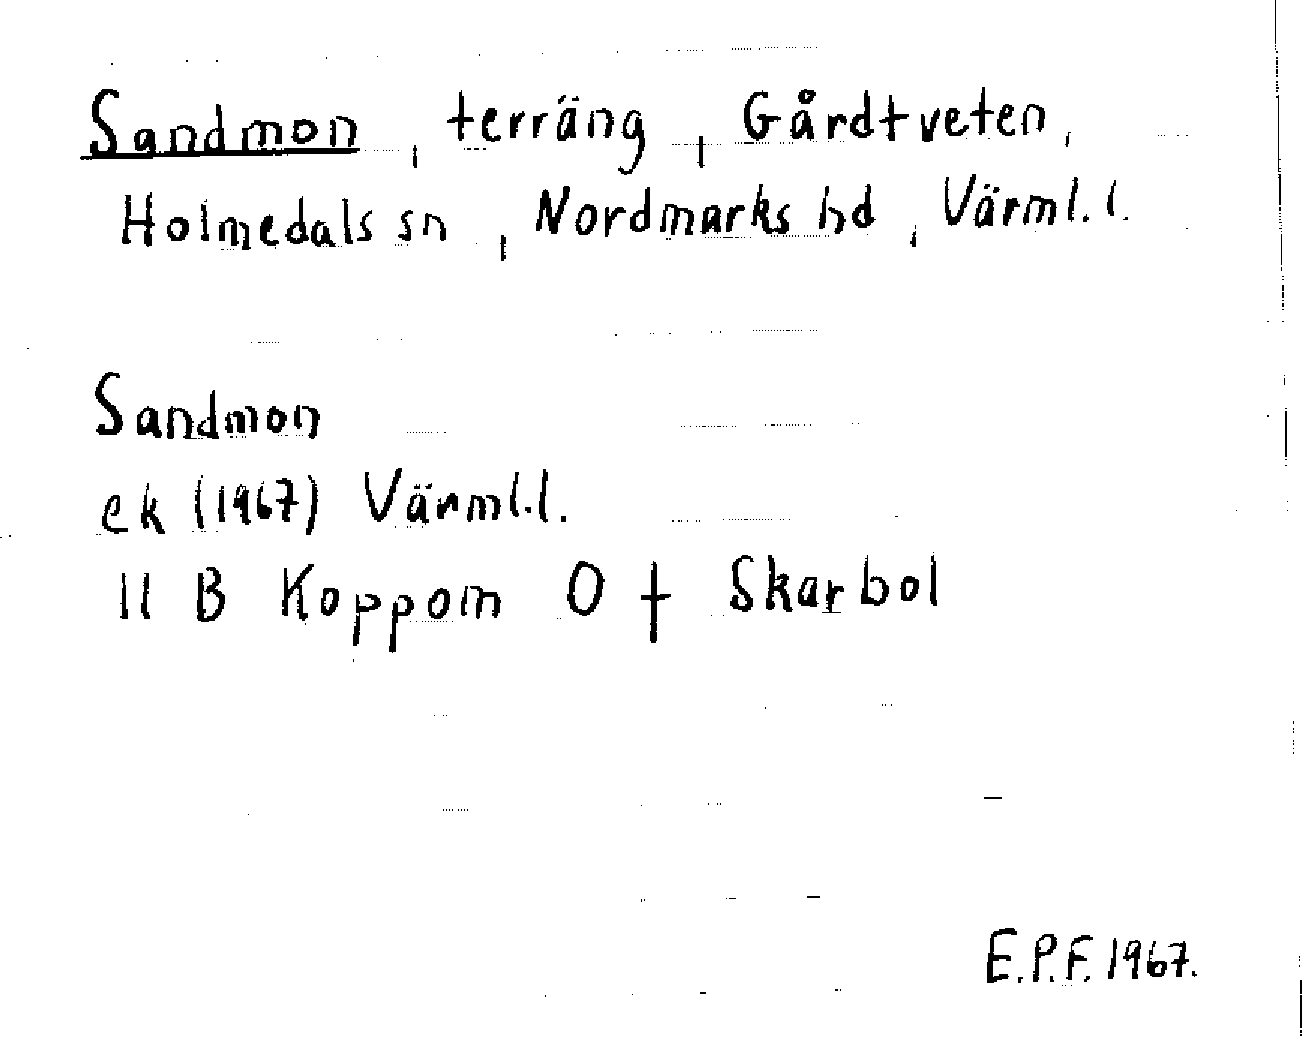 Sandmon, terräng, Gårdtveten,
Holmedals sn, Nordmarks hd, Värml. l.
Sandmon
ek (1967) Värml.l.
11 B Koppom 0 f Skarbol
E.P.F. 1967.